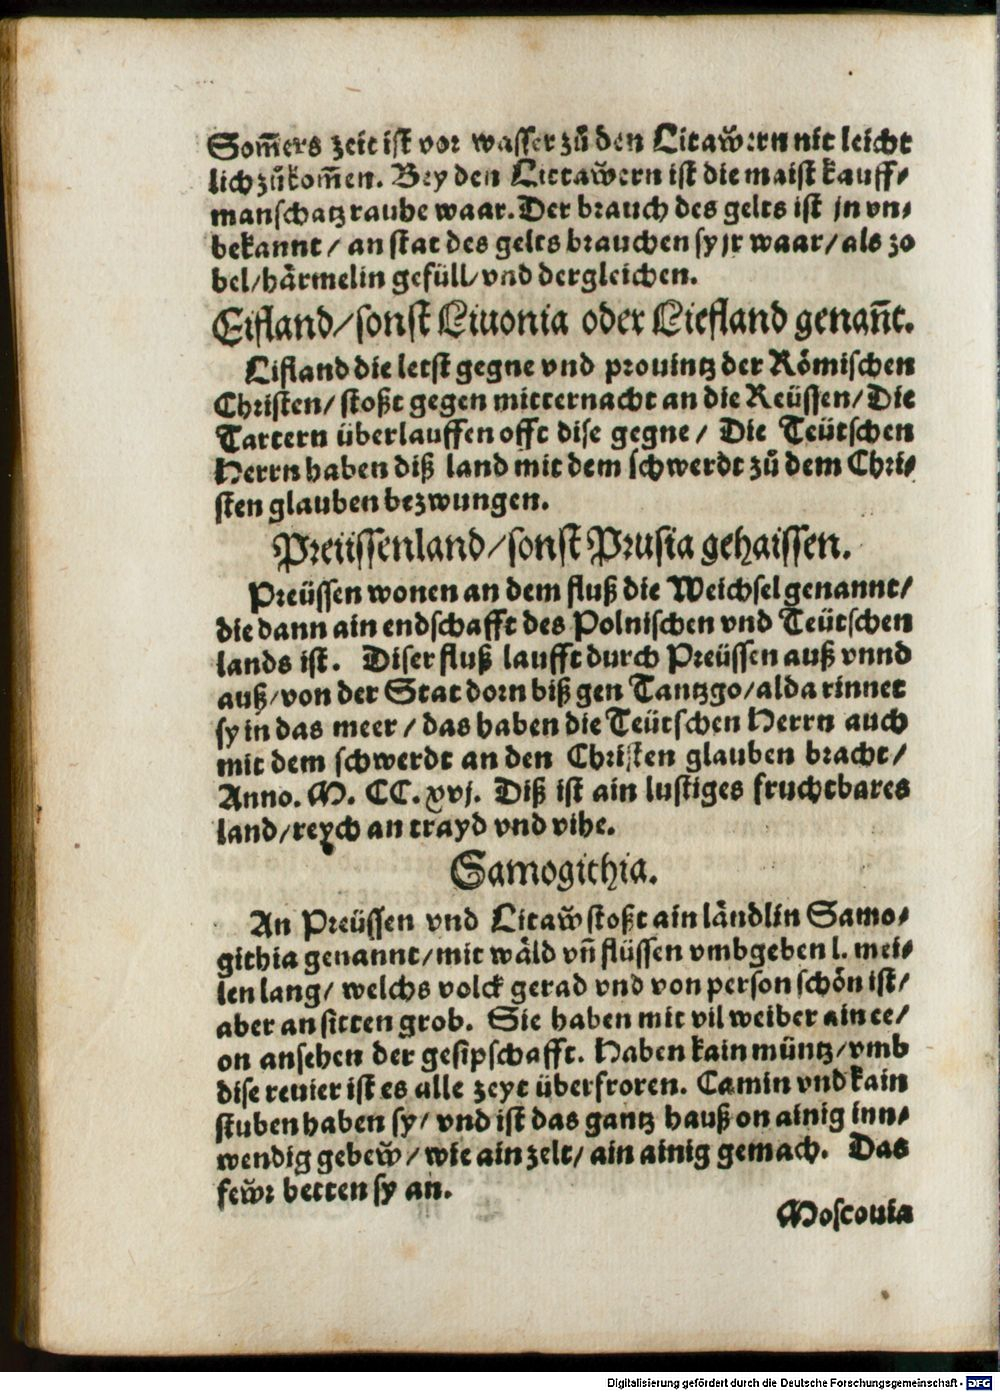 Som̃ers zeit ist vor wasser zů den Litaw̃ern nit leicht
lich zůkom̃en. Bey den Littaw̃ern ist die maist kauff⸗
manschatz rauhe waar. Der brauch des gelts ist jn vn⸗
bekannt / an stat des gelts brauchen sy jr waar / als zo
bel / härmelin gefüll / vnd dergleichen.
Eifland / sonst Liuonia oder Liefland genañt.
Lifland die letst gegne vnd prouintz der Römischen
Christen / stoßt gegen mitternacht an die Reüssen / Die
Tartern überlauffen offt dise gegne / Die Teütschen
Herrn haben diß land mit dem schwerdt zů dem Chri⸗
sten glauben bezwungen.
Preüssenland / sonst Prusia gehaissen.
Preüssen wonen an dem fluß die Weichsel genannt /
die dann ain endschafft des Polnischen vnd Teütschen
lands ist. Diser fluß laufft durch Preüssen auß vnnd
auß / von der Stat dorn biß gen Tantzgo / alda rinnet
sy in das meer / das haben die Teütschen Herrn auch
mit dem schwerdt an den Christen glauben bracht /
Anno. M. CC. xvj. Diß ist ain lustiges fruchtbares
land / reych an trayd vnd vihe.
Samogithia.
An Preüssen vnd Litaw̃ stoßt ain ländlin Samo⸗
githia genannt / mit wäld vñ flüssen vmbgeben l. mei⸗
len lang / welchs volck gerad vnd von person schön ist /
aber an sitten grob. Sie haben mit vil weiber ain ee /
on ansehen der gesipschafft. Haben kain müntz / vmb
dise reuier ist es alle zeyt überfroren. Camin vnd kain
stuben haben sy / vnd ist das gantz hauß on ainig inn⸗
wendig gebew̃ / wie ain zelt / ain ainig gemach. Das
few̃r betten sy an.
Moscouia
Digitalisierung gefördert durch die Deutsche Forschungsgemeinschaft - DFG